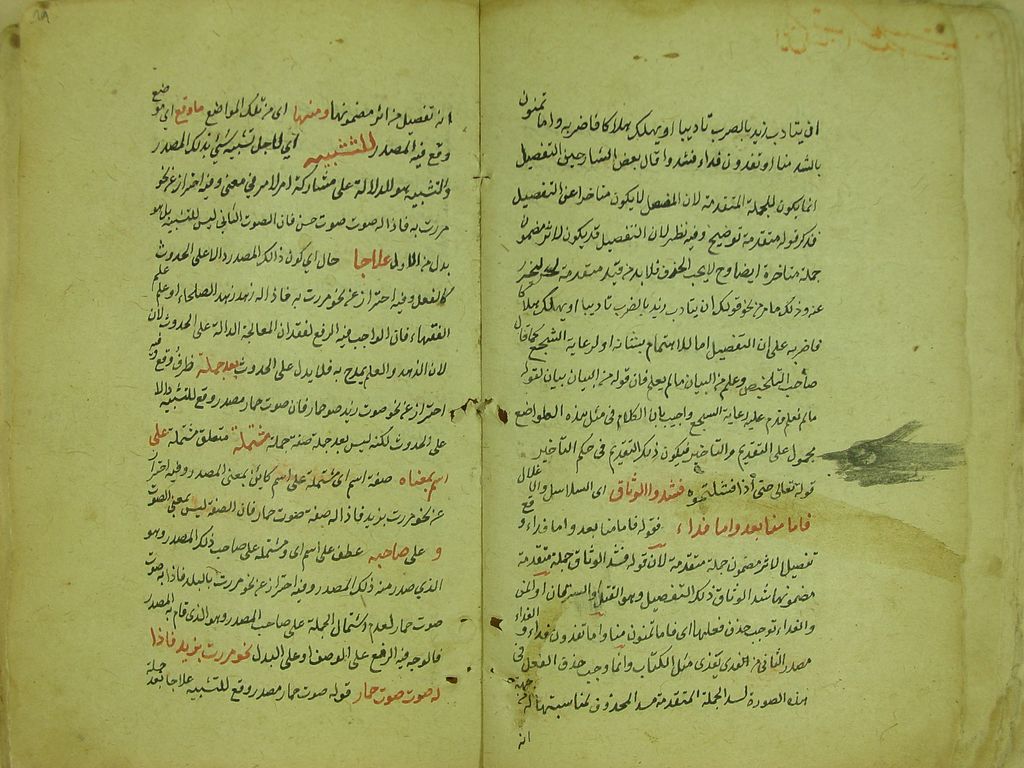 ان يتادب زيد بالضرب تاديبا او يهلك هلاكا فاضربه واما تمنون
بالشد منا او تفدون فداء فشدوا قال بعض الشارحين التفصيل
انما يكون للجملة المتقدمة لان المفصل لا يكون متاخرا عن التفصيل
فذكر قوله متقدمة توضيح وفيه نظر لان التفصيل قد يكون لاثر مضمون
جملة متاخرة ايضا وح لا يجب الحذف فلا بد من قيد متقدمة
عنه وذلك ما مر من نحو قولك ان يتادب زيد بالضرب تاديبا او يهلك هلاكا
فاضربه على ان التفصيل اما للاهتمام بشانه او لرعاية السجع كما قال
صاحب التلخيص وعلم من البيان ما لم يعلم فان قوله من البيان بيان لقوله
ما لم نعلم قدم عليه لرعاية السجع واجيب بان الكلام في مثل هذه المواضع
محمول على التقديم والتاخير فيكون ذلك التقديم في حكم التاخير
قوله تعالى حتى اذا فشدوا الوثاق اى السلاسل والاغلال
فاما منا بعد واما فداء فقوله فاما منا بعد واما فداء وقع
تفصيل لاثر مضمون جملة متقدمة لان قوله فشدوا الوثاق جملة متقدمة
مضمونها شد الوثاق ذلك التفصيل وهو القتل والاسترقاق او المن
والفداء توجب حذف فعلها اى فاما تمنون منا واما تفدون فداء والفداء
مصدر الثانى من الفدى يفدى مثل الكتاب وانما وجب حذف الفعل فى
هذه الصورة لسد الجملة المتقدمة مسد المحذوف لمناسبتها له
انه
انه تفصيل من اثر مضمونها ومنها اى من تلك المواضع ما وقع اى موضع
وقع فيه المصدر للتشبيه اى لاجل تشبيه شئ بذلك المصدر
والتشبيه هو للدلالة على مشاركة امر لامر فى معنى وفيه احتراز عن نحو
مررت به فاذا له صوت صوت حسن فان الصوت الثانى ليس للتشبيه بل هو
بدل من الاول علاجا حال اى كون ذلك المصدر دالا على الحدوث
كالفعل وفيه احتراز عن نحو مررت به فاذا له زهد زهد الصلحاء او علم علم
الفقهاء فان الواجب فيه الرفع لفقدان المعالجة الدالة على الحدوث لان
لان الزهد والعلم يمدح به فلا يدل على الحدوث بعد جملة ظرف وقع وفيه
احتراز عن نحو صوت زيد صوت حمار فان صوت حمار مصدر وقع للتشبيه دالا
على الحدوث لكنه ليس بعد جملة صفة جملة مشتملة متعلق مشتملة على
اسم بمعناه صفة اسم اى مشتملة على اسم كائن بمعنى المصدر وفيه احتراز
عن نحو مررت بزيد فاذا له صفة صوت حمار فان الصفة ليس بمعنى الصوت
و على صاحبه عطف على اسم اى ومشتملة على صاحب ذلك المصدر وهو
الذى صدر منه ذلك المصدر وفيه احتراز عن نحو مررت بالبلد فاذا به صوت
صوت حمار لعدم اشتمال الجملة على صاحب المصدر وهو الذى قام به المصدر
فالوجه فيه الرفع على الوصف او على البدل نحو مررت بزيد فاذا
له صوت صوت حمار قوله صوت حمار مصدر وقع للتشبيه علاجا بعد جملة